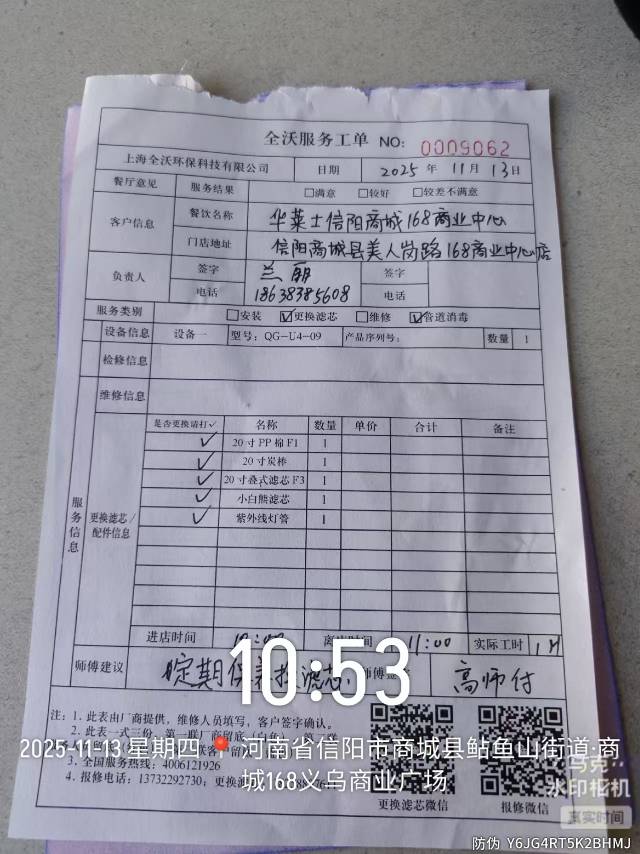 全沃服务工单 NO: 0009062
上海全沃环保科技有限公司 日期 2025 年 11 月 13 日
餐厅意见 服务结果 □满意 □较好 □较差不满意
客户信息 餐饮名称 华莱士信阳商城168商业中心
门店地址 信阳商城县美人岗路168商业中心店
负责人 签字 兰丽 签字
电话 18638385608 电话
服务类别 □安装 ☑更换滤芯 □维修 ☑管道消毒
设备信息 设备一 型号：QG-U4-09 产品序列号： 数量 1
检修信息
维修信息
服务信息
更换滤芯/配件信息
是否更换请打✓ 名称 数量 单价 合计 备注
✓ 20寸PP棉F1 1
✓ 20寸炭棒 1
✓ 20寸叠式滤芯F3 1
✓ 小白熊滤芯 1
✓ 紫外线灯管 1
进店时间 离店时间 11:00 实际工时 1H
师傅建议 定期保养换滤芯 师傅签字 高师付
10:53
注：1. 此表由厂商提供，维修人员填写，客户签字确认。
2. 此表一式三份，第一联厂商留底
2025-11-13 星期四 河南省信阳市商城县鲇鱼山街道·商城168义乌商业广场
3. 全国服务热线：4006121926
4. 报修电话：13732292730；更换滤芯
更换滤芯微信 报修微信
马克
水印相机
真实时间
防伪 Y6JG4RT5K2BHMJ